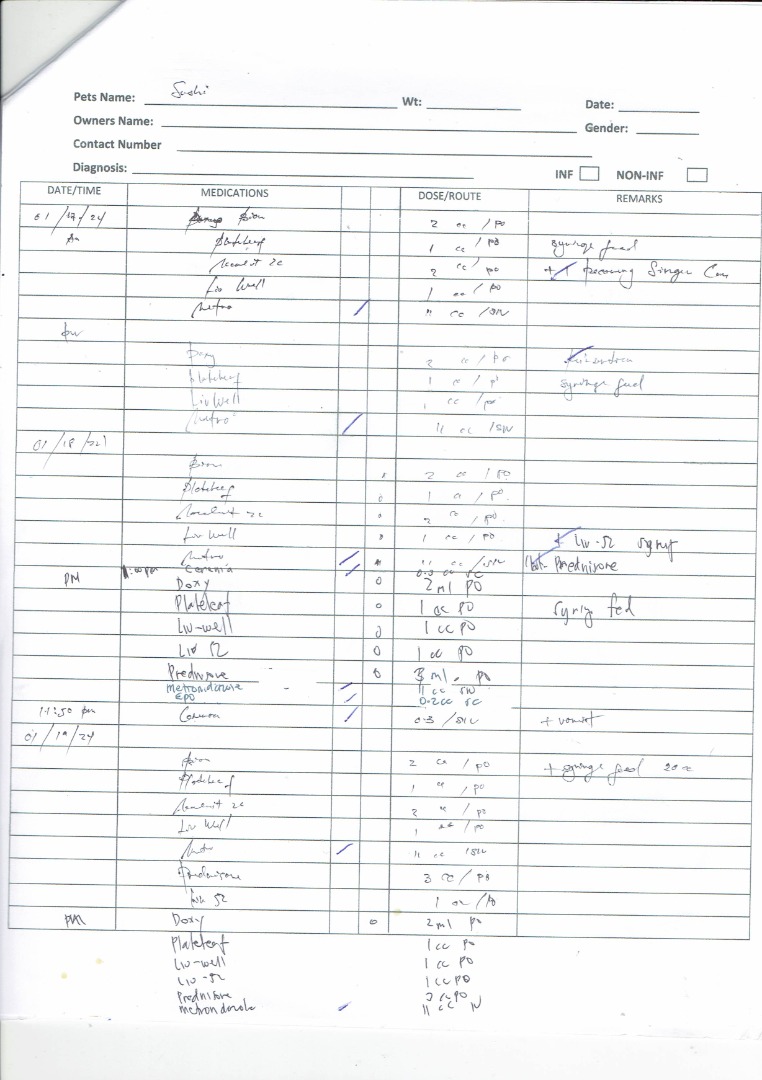 Pets Name: Sushi Wt: Date:
Owners Name: Gender:
Contact Number
Diagnosis: INF NON-INF
DATE/TIME MEDICATIONS DOSE/ROUTE REMARKS
01/17/24 2 cc / po
Plateleaf 1 cc / po syringe feed
2c 2 cc / po
Liv Well 1 cc / po
Metro 11 cc /SIV
Doxy 2 cc / po
Plateleaf 1 cc / po syringe feed
Liv Well 1 cc / po
Metro 11 cc /SIV
01/18/24
2 cc / po
Plateleaf 1 cc / po.
2c 2 cc / po.
Liv Well 1 cc / po.
Metro 11 cc /SIV
+ Liv-52
1:00pm Cerenia 0.3 cc sc Prednisone
PM Doxy 2 ml po
Plateleaf 1 cc po fed
Liv-well 1 cc po
Liv 52 1 cc po
Prednisone 3 ml. po
Metronidazole - 11 cc SIV
EPO - 0.2cc sc
11:50 pm Cerenia 0.3 /SIV + vomit
01/19/24
2 cc / po + syringe feed 20 cc
Plateleaf 1 cc / po
2c 2 cc / po
Liv Well 1 cc / po
Metro 11 cc /SIV
Prednisone 3 cc / po
Liv 52 1 cc / po
PM Doxy 2 ml po
Plateleaf 1 cc po
Liv-well 1 cc po
Liv-52 1 cc po
Prednisone 3 cc po
Metronidazole 11 cc IV